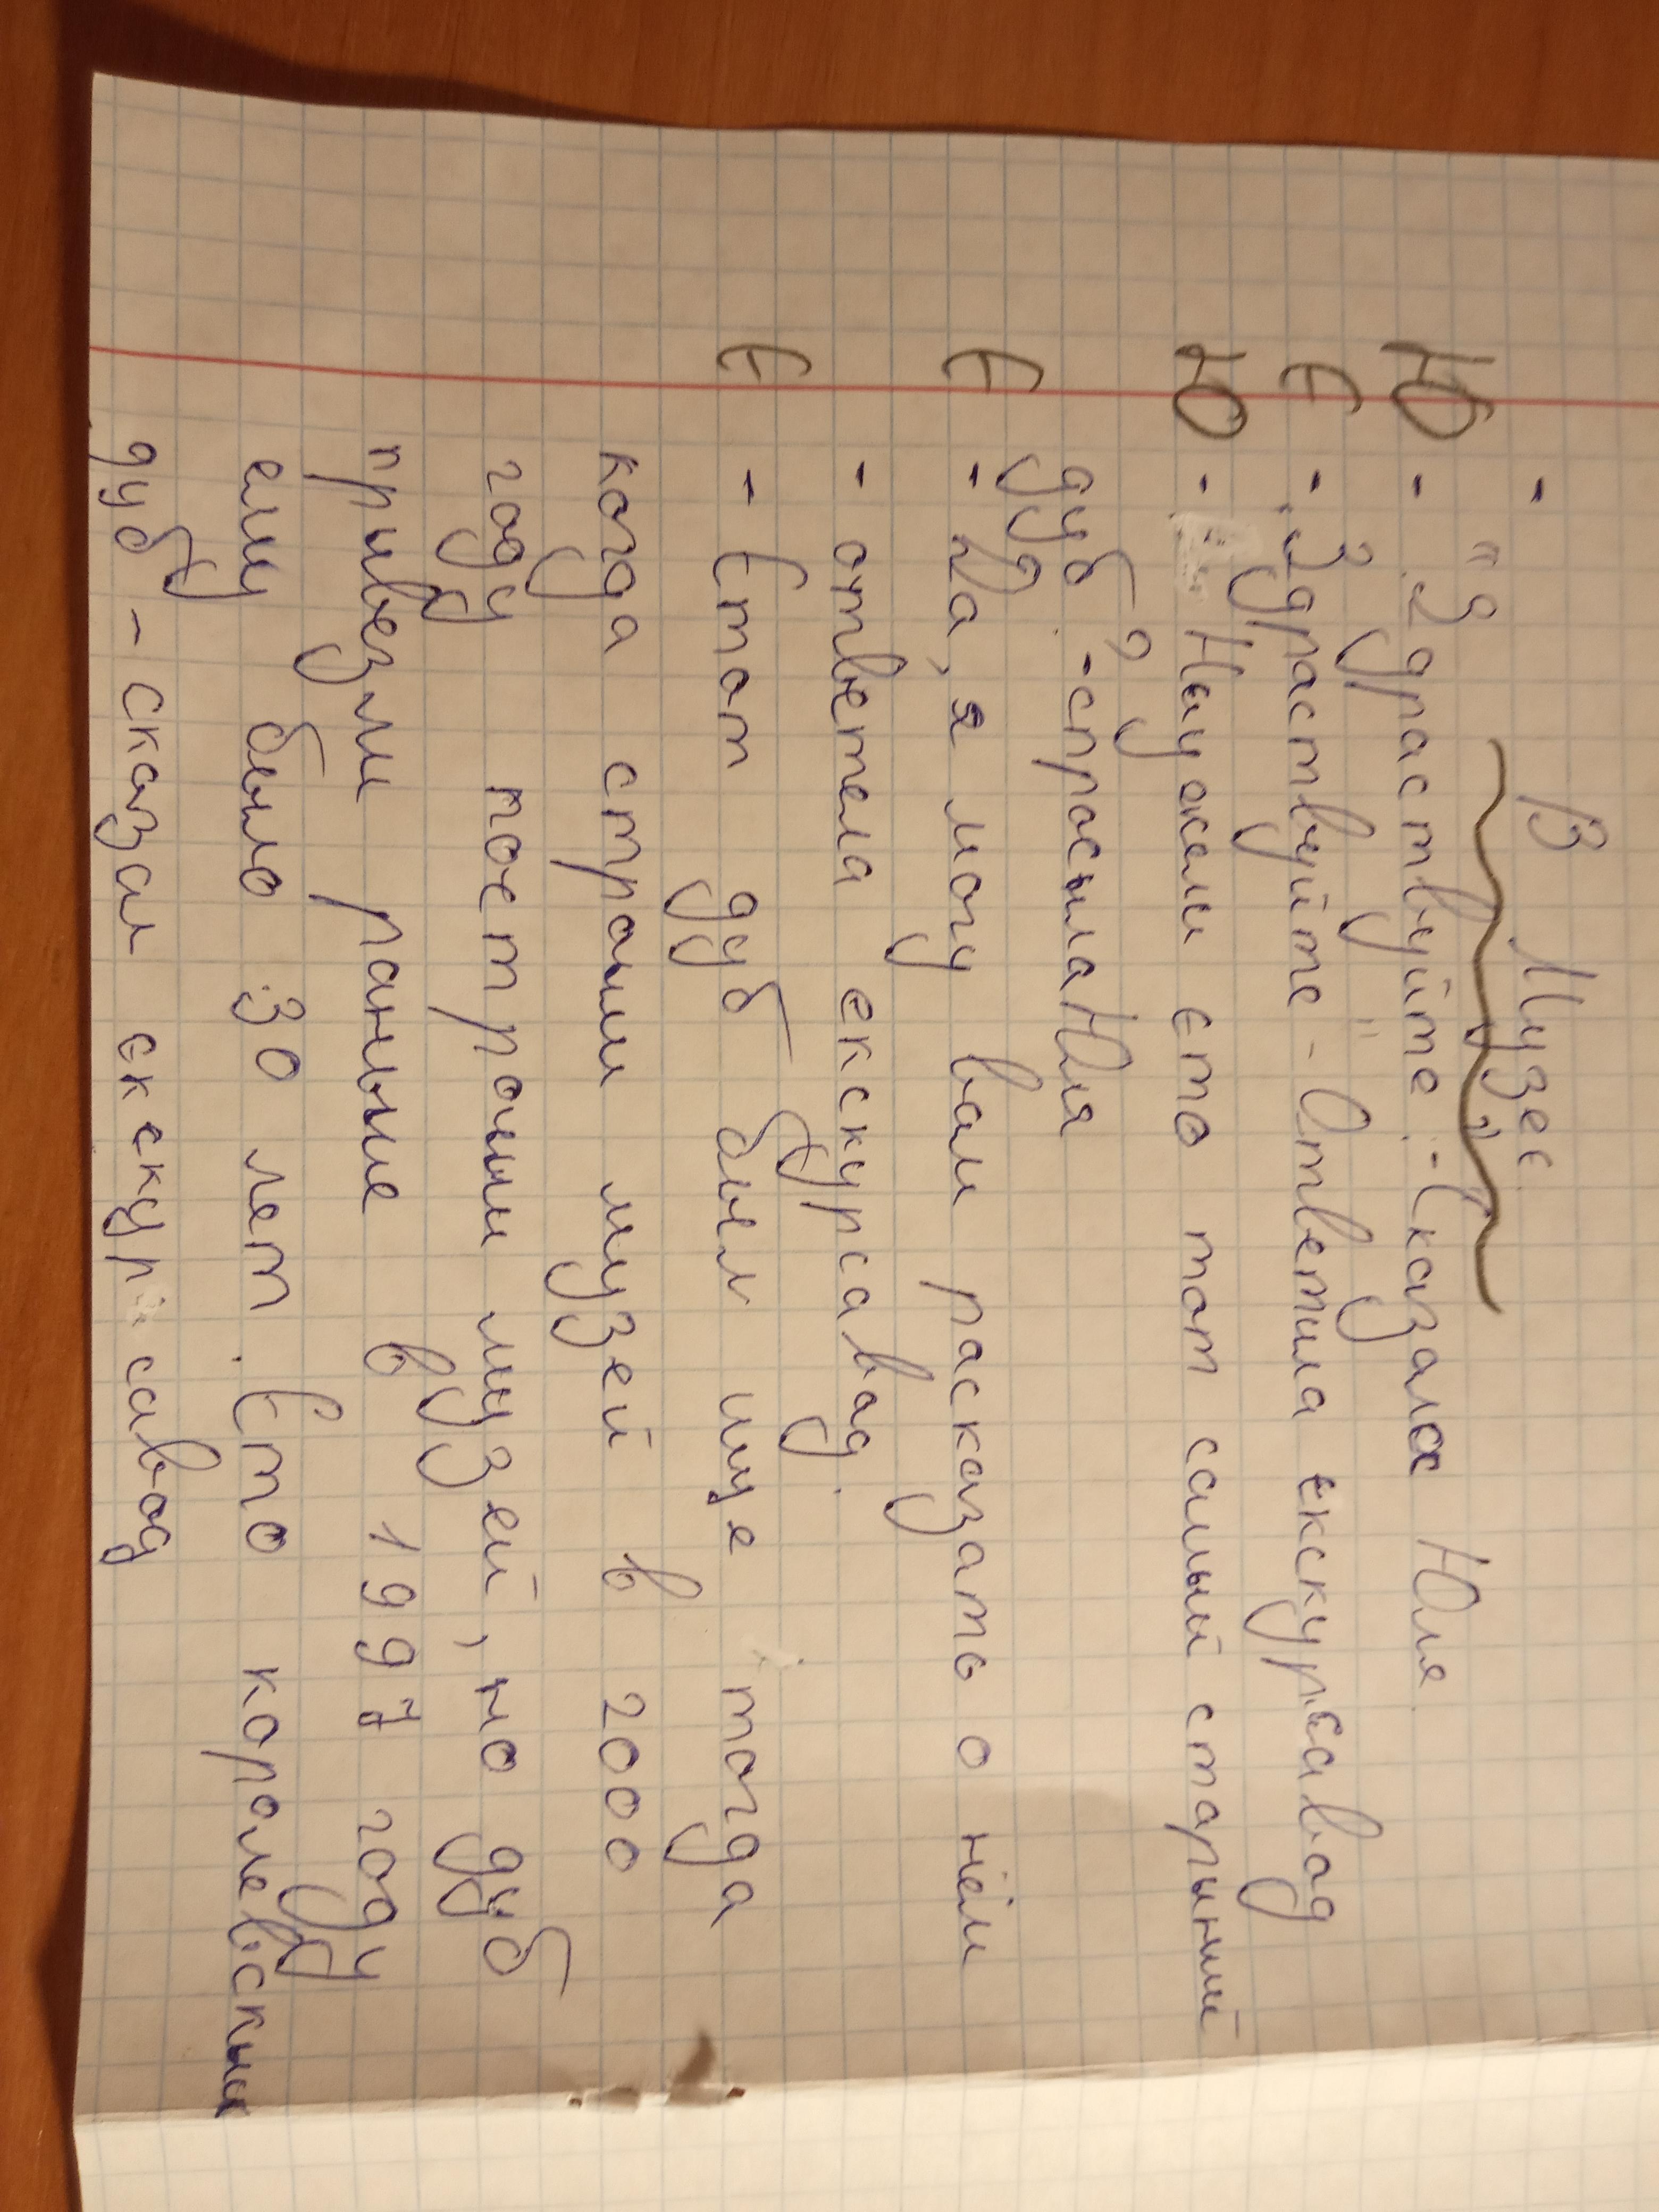 - В Музее
Ю - "Здраствуйте" - Сказала Юля
Е - "Здраствуйте" - Ответила екскурсавод
Ю - Неужели ето тот самый старынный
дуб? - спросила Юля
Е - Да, я могу вам расказать о нём
- ответела екскурсавод.
Е - Етот дуб был ище тогда
когда строили музей в 2000
году поетроили музей, но дуб
привезли раньше в 1997 году
ему было 30 лет. Ето королевскый
дуб - сказал екскурсавод